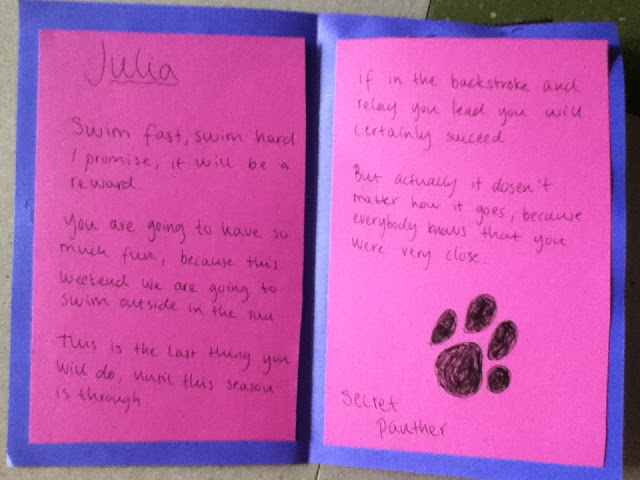 Julia
Swim fast, swim hard
I promise, it will be a
reward.
You are going to have so
much fun, because this
weekend we are going to
swim outside in the sun
This is the last thing you
will do, until this season
is through
If in the backstroke and
relay you lead you will
certainly succeed
But actually it dosen't
matter how it goes, because
everybody knows that you
were very close.
Secret
Panther